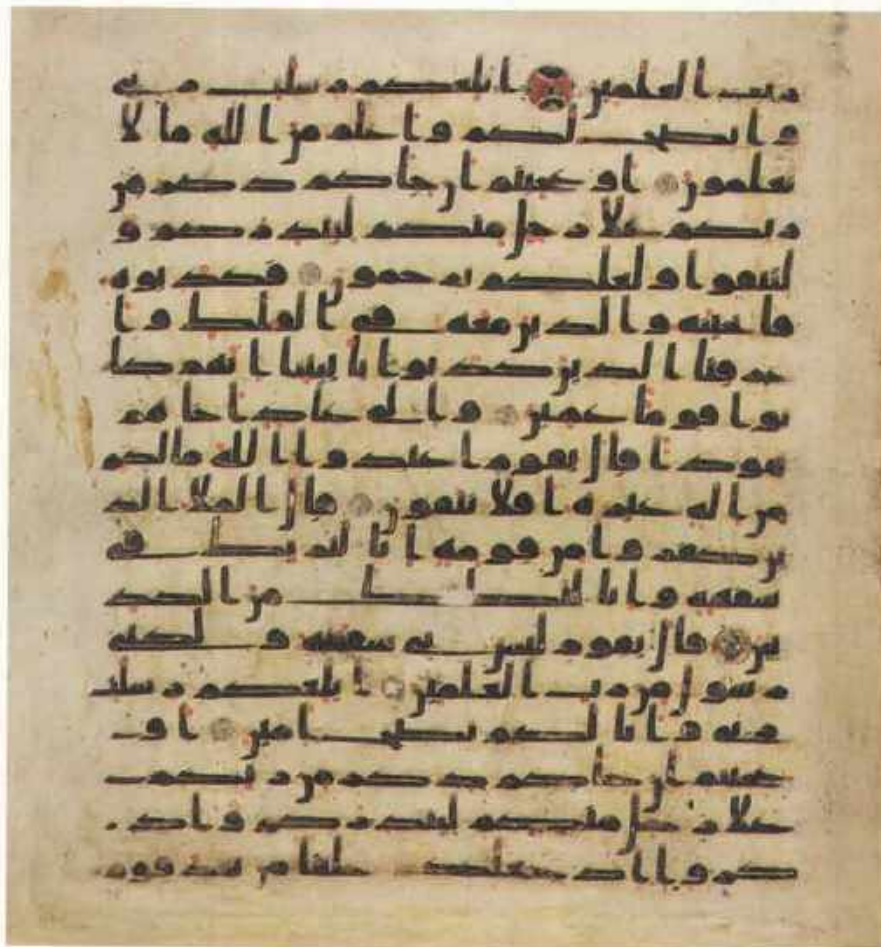 رب العلمين ابلغكم رسلت ربي
وانصح لكم واعلم من الله ما لا
تعلمون اوعجبتم ان جاكم ذكر من
ربكم علا رجل منكم لينذركم و
لتتقوا ولعلكم ترحمون فكذبوه
فانجينه والذين معه في الفلك وا
غرقنا الذين كذبوا باييتنا انهم كا
نوا قوما عمين والى عاد اخاهم
هودا قال يقوم اعبدوا الله مالكم
من اله غيره افلا تتقون قال الملا الذ
ين كفروا من قومه انا لنريك في
سفهة وانا لنظنك من الكذ
بين قال يقوم ليس بي سفهة ولكني
رسول من رب العلمين ابلغكم رسلت
ربي وانا لكم نصح امين او
عجبتم ان جاكم ذكر من ربكم
علا رجل منكم لينذركم واذ
كروا اذ جعلكم خلفا من بعد قوم